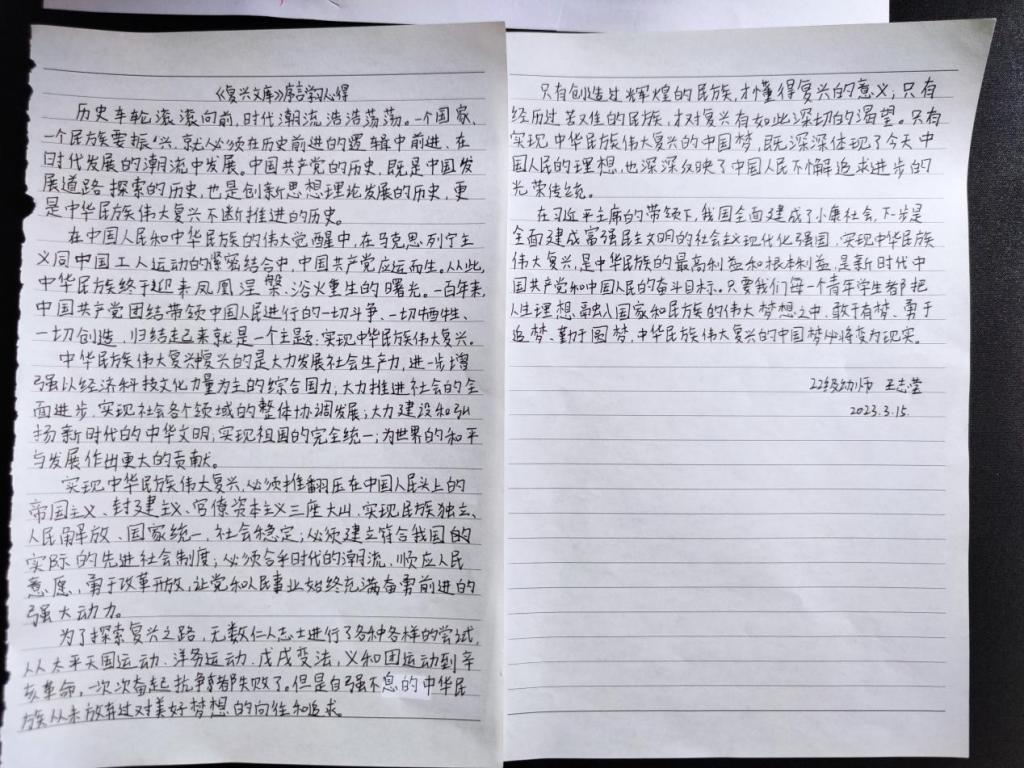 《复兴文库》序言学习心得
历史车轮滚滚向前,时代潮流浩浩荡荡。一个国家、
一个民族要振兴,就必须在历史前进的逻辑中前进、在
时代发展的潮流中发展。中国共产党的历史,既是中国发
展道路探索的历史,也是创新思想理论发展的历史,更
是中华民族伟大复兴不断推进的历史。
在中国人民和中华民族的伟大觉醒中,在马克思列宁主
义同中国工人运动的紧密结合中,中国共产党应运而生。从此,
中华民族终于迎来凤凰涅槃、浴火重生的曙光。一百年来,
中国共产党团结带领中国人民进行的一切斗争、一切牺牲、
一切创造,归结起来就是一个主题:实现中华民族伟大复兴。
中华民族伟大复兴复兴的是大力发展社会生产力,进一步增
强以经济科技文化力量为主的综合国力,大力推进社会的全
面进步,实现社会各个领域的整体协调发展;大力建设和弘
扬新时代的中华文明;实现祖国的完全统一;为世界的和平
与发展作出更大的贡献。
实现中华民族伟大复兴,必须推翻压在中国人民头上的
帝国主义、封建主义、官僚资本主义三座大山,实现民族独立、
人民解放、国家统一、社会稳定;必须建立符合我国的
实际的先进社会制度;必须合乎时代的潮流、顺应人民
意愿,勇于改革开放,让党和人民事业始终充满奋勇前进的
强大动力。
为了探索复兴之路,无数仁人志士进行了各种各样的尝试,
从太平天国运动、洋务运动、戊戌变法,义和团运动到辛
亥革命,一次次奋起抗争都失败了。但是自强不息的中华民
族从未放弃过对美好梦想的向往和追求。
只有创造过辉煌的民族,才懂得复兴的意义;只有
经历过苦难的民族,才对复兴有如此深切的渴望。只有
实现中华民族伟大复兴的中国梦,既深深体现了今天中
国人民的理想,也深深反映了中国人民不懈追求进步的
光荣传统。
在习近平主席的带领下,我国全面建成了小康社会,下一步是
全面建成富强民主文明的社会主义现代化强国,实现中华民族
伟大复兴,是中华民族的最高利益和根本利益,是新时代中
国共产党和中国人民的奋斗目标。只要我们每一个青年学生都把
人生理想融入国家和民族的伟大梦想之中,敢于有梦、勇于
追梦、勤于圆梦,中华民族伟大复兴的中国梦必将变为现实。
22级幼师 王志莹
2023.3.15.